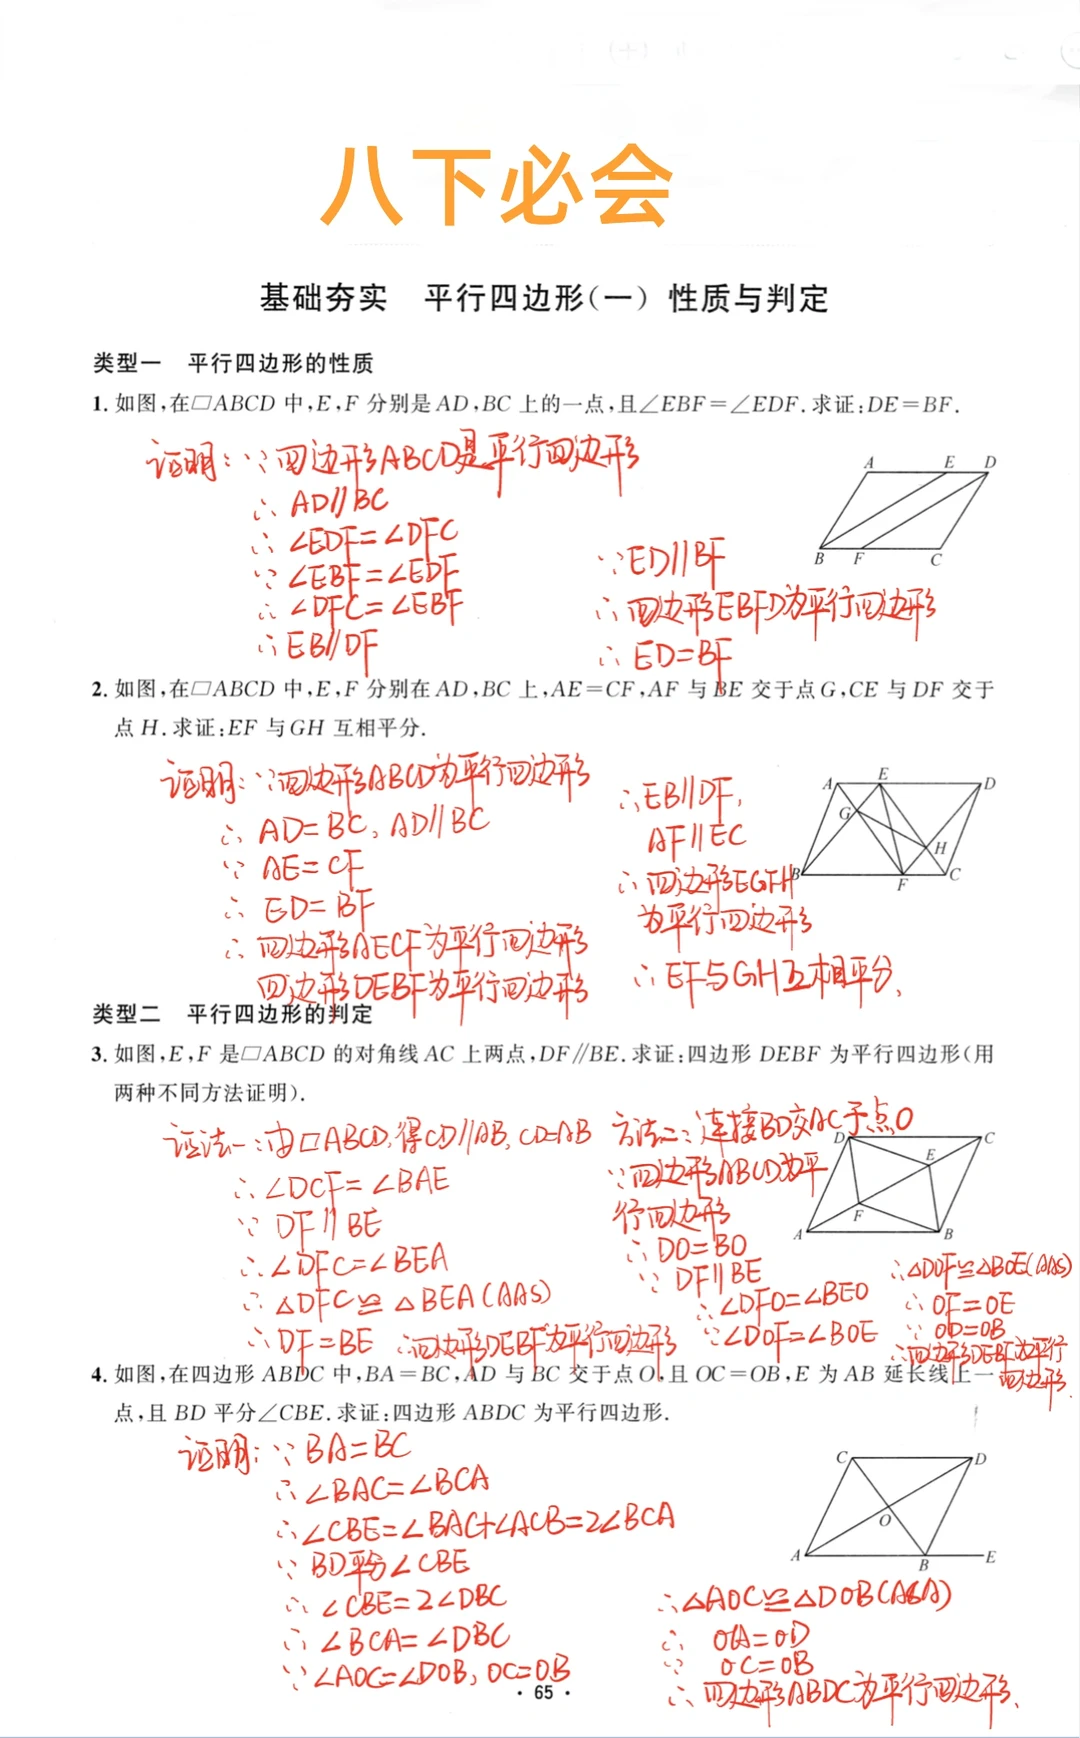 八下必会
基础夯实 平行四边形(一) 性质与判定
类型一 平行四边形的性质
1. 如图,在□ABCD 中,E,F 分别是 AD,BC 上的一点,且∠EBF=∠EDF. 求证:DE=BF.
证明:∵四边形ABCD是平行四边形
∴ AD∥BC
∴ ∠EDF=∠DFC
∵ ∠EBF=∠EDF
∴ ∠DFC=∠EBF
∴ EB∥DF
∵ED∥BF
∴四边形EBFD为平行四边形
∴ ED=BF
A E D
B F C
2. 如图,在□ABCD 中,E,F 分别在 AD,BC 上,AE=CF,AF 与 BE 交于点 G,CE 与 DF 交于
点 H. 求证:EF 与 GH 互相平分.
证明:∵四边形ABCD为平行四边形
∴ AD=BC, AD∥BC
∵ AE=CF
∴ ED=BF
∴ 四边形AECF为平行四边形
四边形DEBF为平行四边形
∴EB∥DF,
AF∥EC
∴四边形EGFH
为平行四边形
∴EF与GH互相平分.
A E D
G
H
B F C
类型二 平行四边形的判定
3. 如图,E,F 是□ABCD 的对角线 AC 上两点,DF∥BE. 求证:四边形 DEBF 为平行四边形(用
两种不同方法证明).
证法一:由□ABCD,得CD∥AB, CD=AB
∴∠DCF=∠BAE
∵ DF∥BE
∴∠DFC=∠BEA
∴△DFC≌△BEA(AAS)
∴DF=BE ∴四边形DEBF为平行四边形
方法二:连接BD交AC于点O
∵四边形ABCD为平
行四边形
∴ DO=BO
∵ DF∥BE
∴∠DFO=∠BEO
∵∠DOF=∠BOE
∴△DOF≌△BOE(AAS)
∴ OF=OE
∵ OD=OB
∴四边形DEBF为平行
四边形.
D C
E
F
A B
4. 如图,在四边形 ABDC 中,BA=BC,AD 与 BC 交于点 O,且 OC=OB,E 为 AB 延长线上一
点,且 BD 平分∠CBE. 求证:四边形 ABDC 为平行四边形.
证明:∵ BA=BC
∴∠BAC=∠BCA
∴∠CBE=∠BAC+∠ACB=2∠BCA
∵ BD平分∠CBE
∴ ∠CBE=2∠DBC
∴ ∠BCA=∠DBC
∵ ∠AOC=∠DOB, OC=OB
∴△AOC≌△DOB(ASA)
∴ OA=OD
∵ OC=OB
∴ 四边形ABDC为平行四边形.
C D
O
A B E
· 65 ·